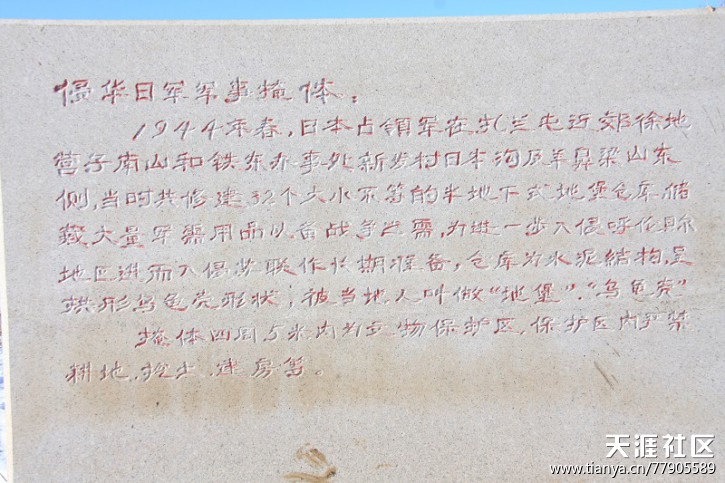 侵华日军军事掩体:
1944年春,日本占领军在扎兰屯近郊徐地
营子南山和铁东办事处新发村日本沟及羊鼻梁山东
侧,当时共修建32个大小不等的半地下式地堡仓库,储
藏大量军需用品以备战争之需,为进一步入侵呼伦贝尔
地区进而入侵苏联作长期准备,仓库为水泥结构,呈
拱形乌龟壳形状,被当地人叫做“地堡”.“乌龟壳”
掩体四周5米内为文物保护区,保护区内严禁
耕地.挖土.建房等。
天涯社区
www.tianya.cn/77905589